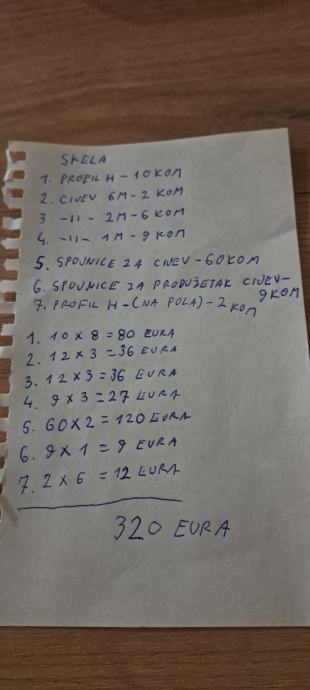 SKELA
1. PROFIL H - 10 KOM
2. CIJEV 6M - 2 KOM
3. -11- 2M - 6 KOM
4. -11- 1M - 9 KOM
5. SPOJNICE ZA CIJEV - 60 KOM
6. SPOJNICE ZA PRODUŽETAK CIJEVI - 9 KOM
7. PROFIL H - (NA POLA) - 2 KOM
1. 10 x 8 = 80 EURA
2. 12 x 3 = 36 EURA
3. 12 x 3 = 36 EURA
4. 9 x 3 = 27 EURA
5. 60 x 2 = 120 EURA
6. 9 x 1 = 9 EURA
7. 2 x 6 = 12 EURA
320 EURA